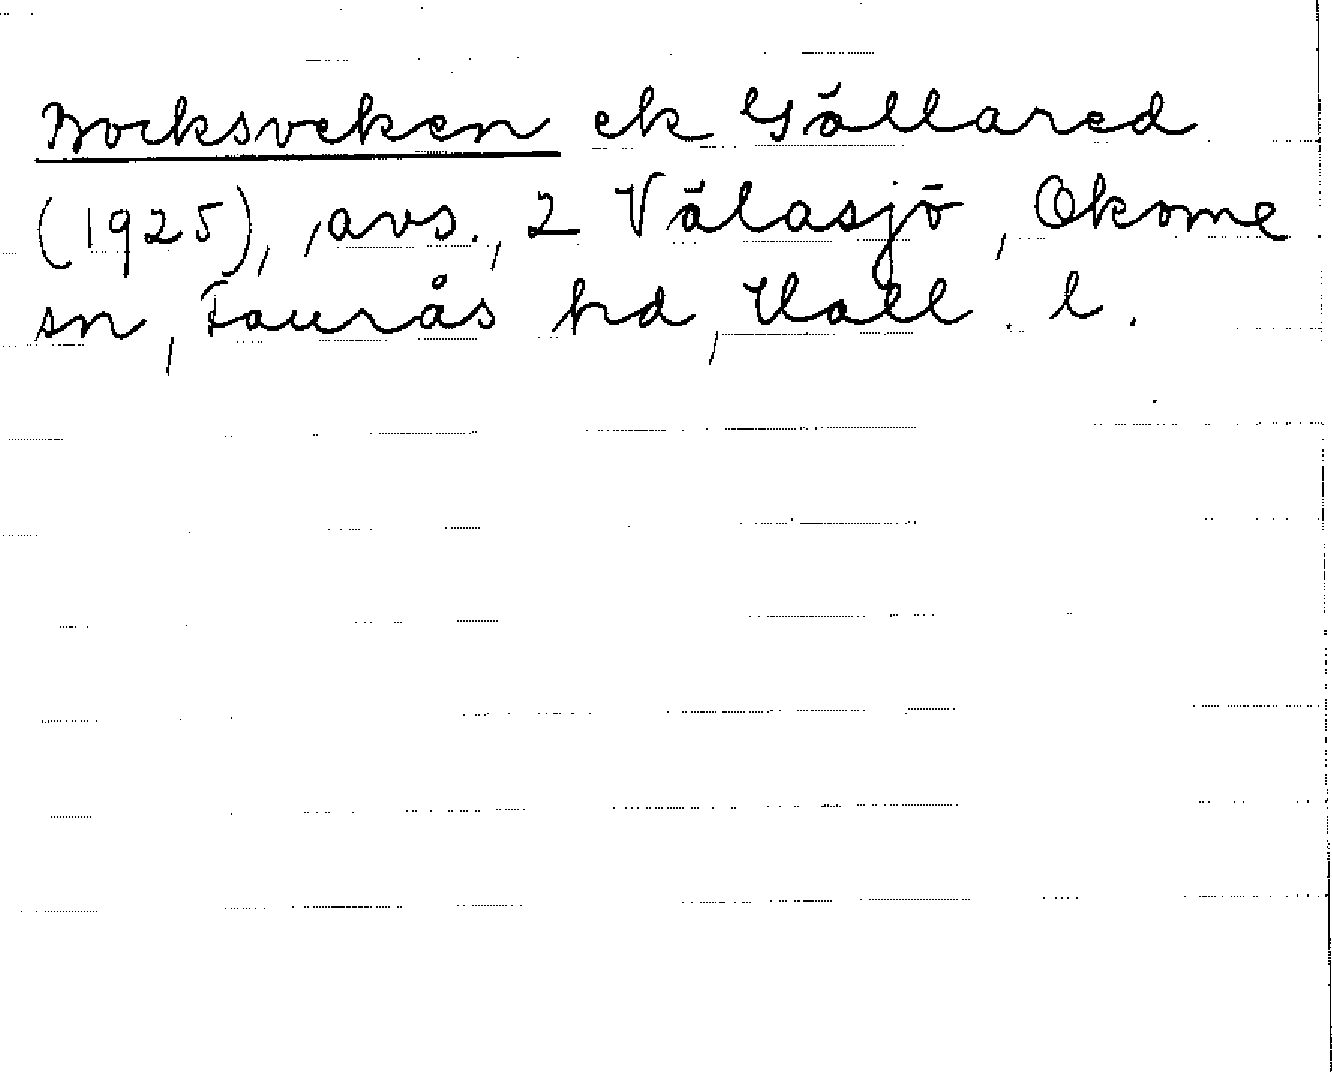 Bocksveken ek Gällared
(1925), avs., 2 Välasjö, Okome
sn, Faurås hd, Hall. l.